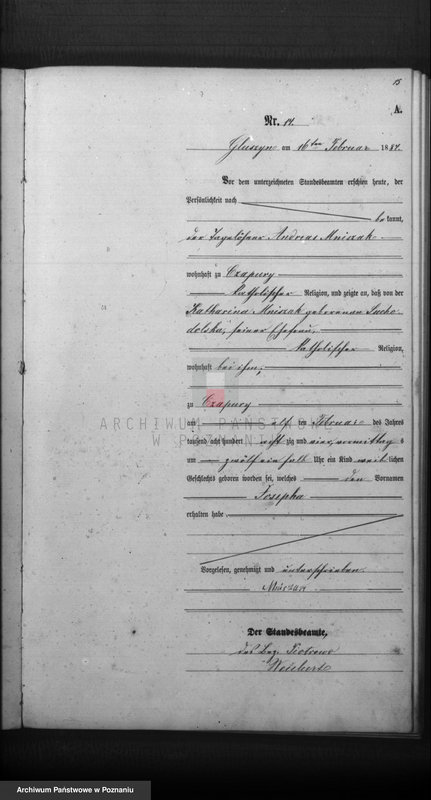 15
A.
Nr. 14.
Gluszyn am 16ten Februar 1884.
Vor dem unterzeichneten Standesbeamten erschien heute, der
Persönlichkeit nach
bekannt,
der Tagelöhner Andreas Mniszak
wohnhaft zu Czapury
katholischer Religion, und zeigte an, daß von der
Katharina Mniszak geborenen Sucho-
dolska, seiner Ehefrau,
katholischer Religion,
wohnhaft bei ihm,
zu Czapury
ARCHIWUM PAŃSTWOWE
W POZNANIU
am elften Februar des Jahres
tausend acht hundert achtzig und vier, vormittags
um zwölf ein halb Uhr ein Kind weiblichen
Geschlechts geboren worden sei, welches den Vornamen
Josepha
erhalten habe.
Vorgelesen, genehmigt und unterschrieben.
Der Standesbeamte,
des Bez. Piotrowo
Archiwum Państwowe w Poznaniu